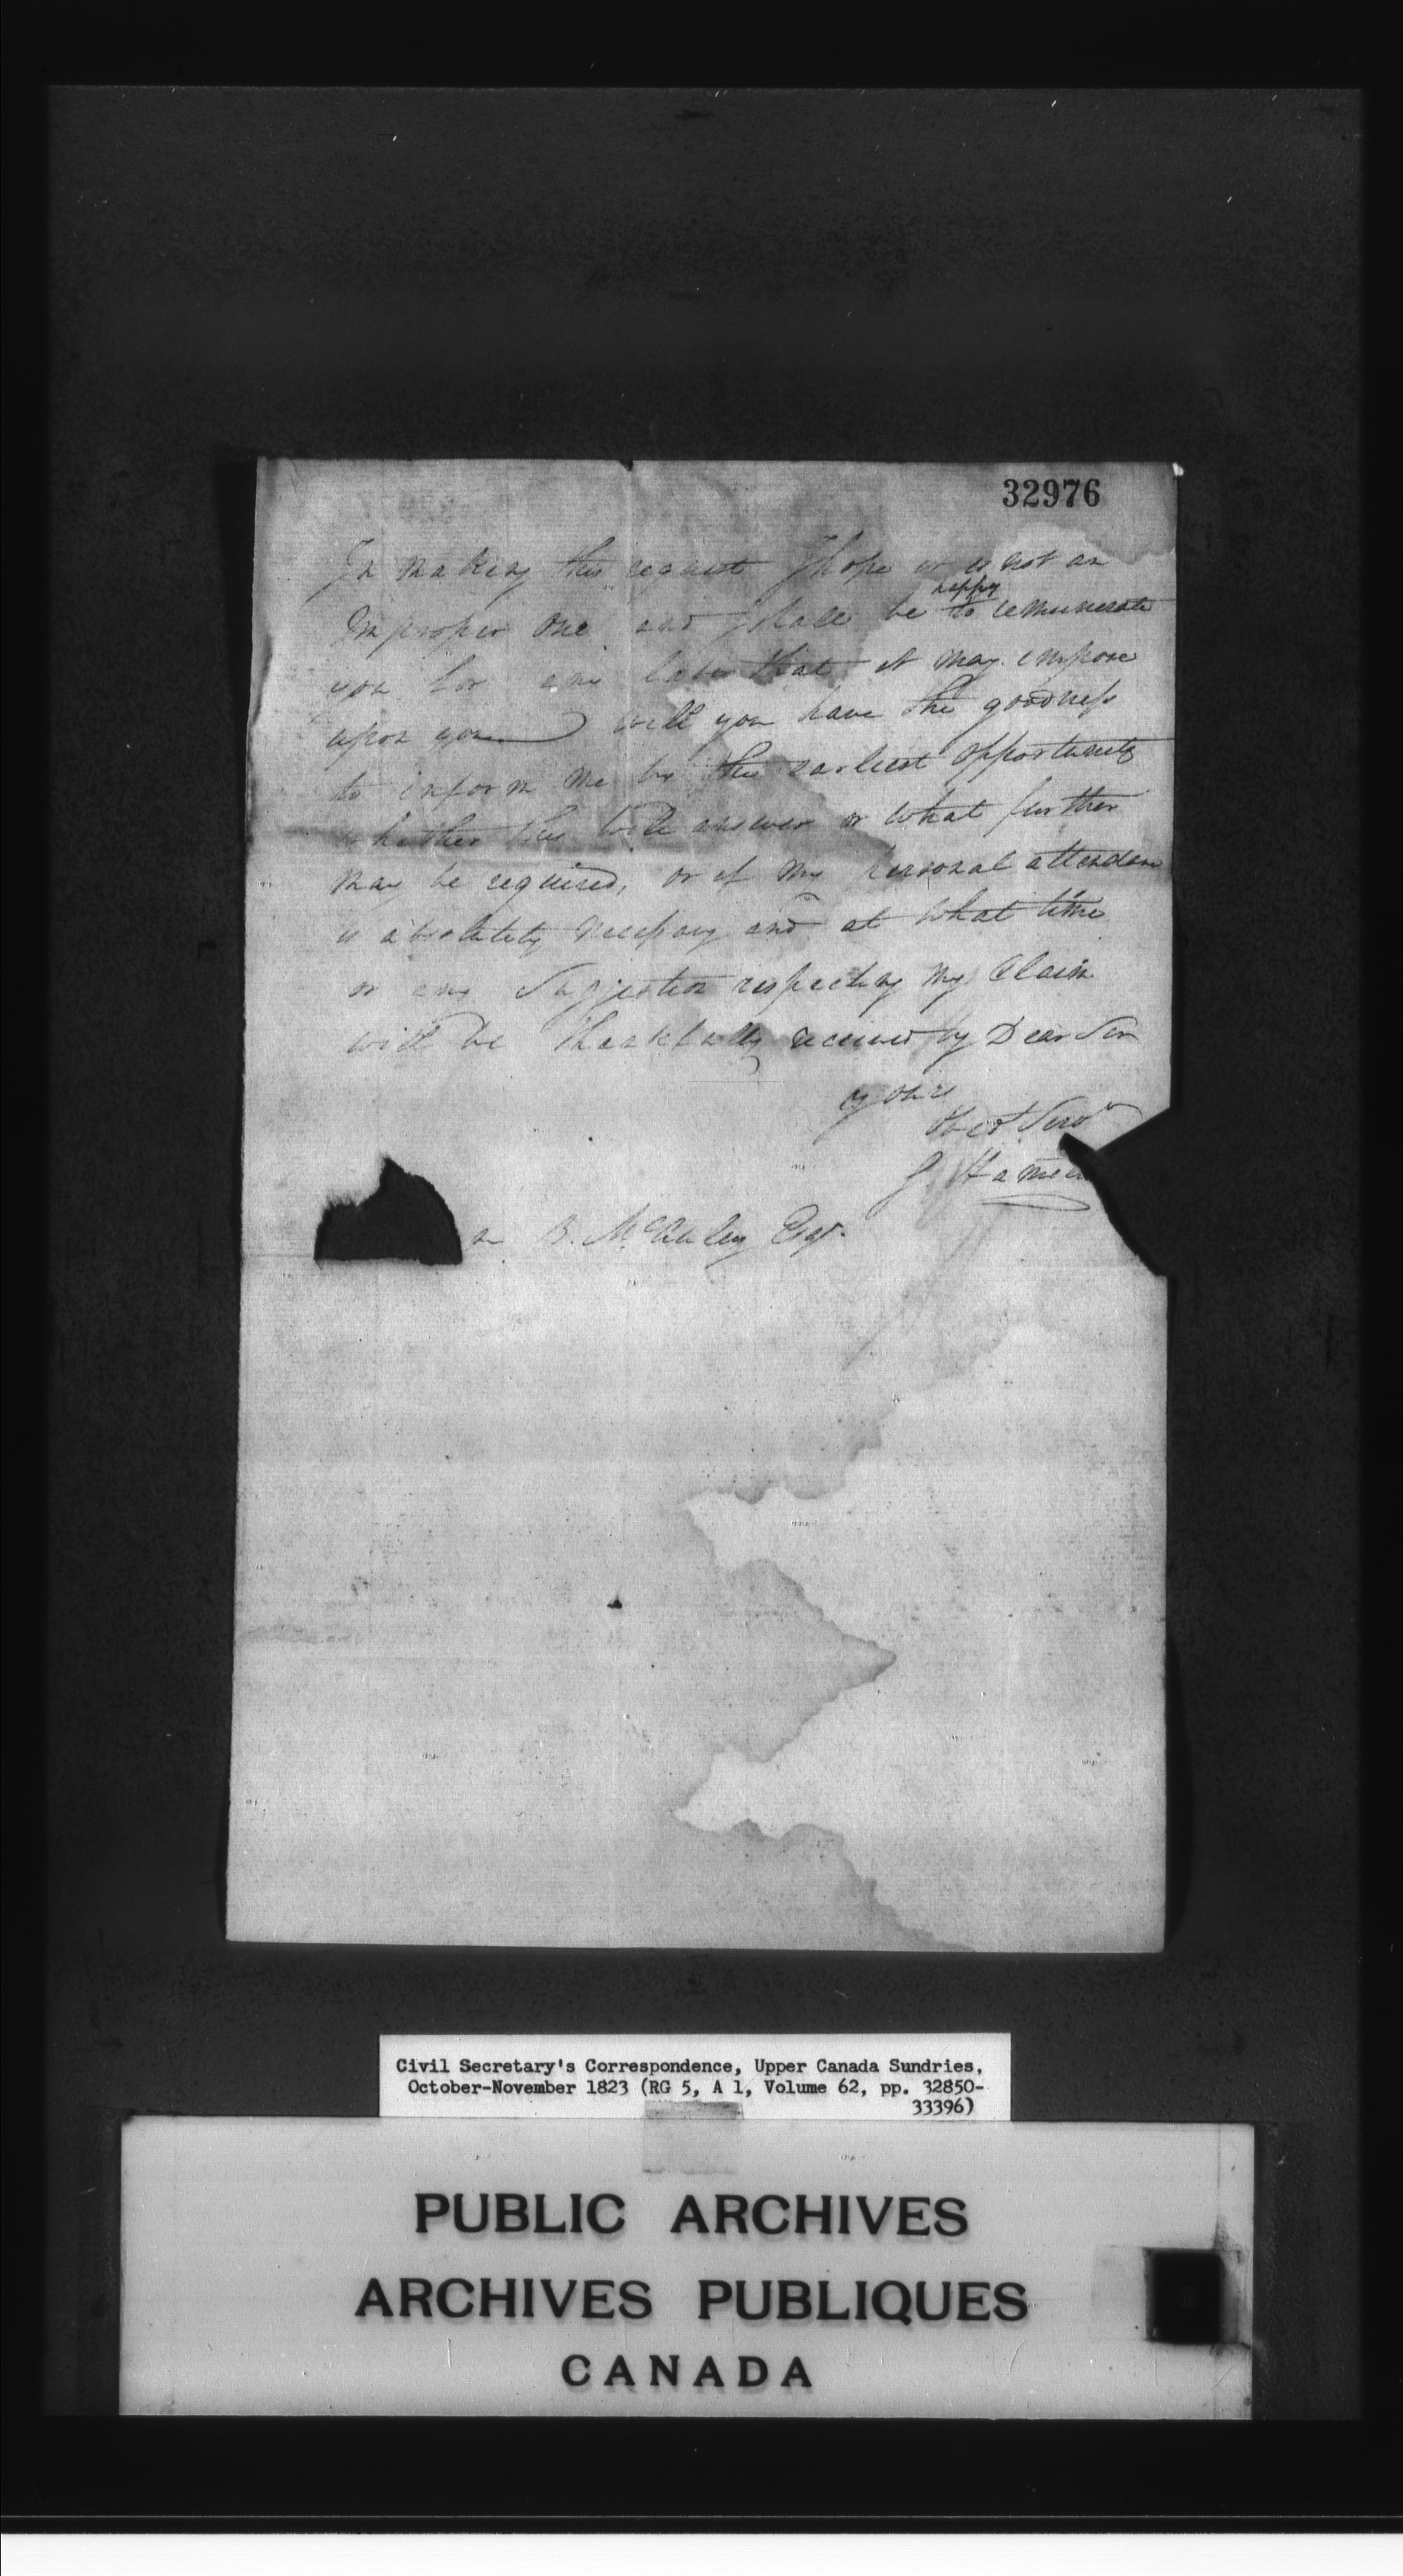 32976
In making this request I hope it is not an
happy
Improper one and I shall be to remunerate
you for any labor that it may impose
upon you will you have the goodness
to inform me by the earliest opportunity
whether this will answer or what further
may be required, or if my personal attendance
is absolutely necessary and at what time
or any Suggestion respecting my Claim
will be thankfully received by Dear Sir
yours
Obed Servt
J Hamel
B. McAuley Esqr.
Civil Secretary's Correspondence, Upper Canada Sundries,
October-November 1823 (RG 5, A 1, Volume 62, pp. 32850-
33396)
PUBLIC ARCHIVES
ARCHIVES PUBLIQUES
CANADA